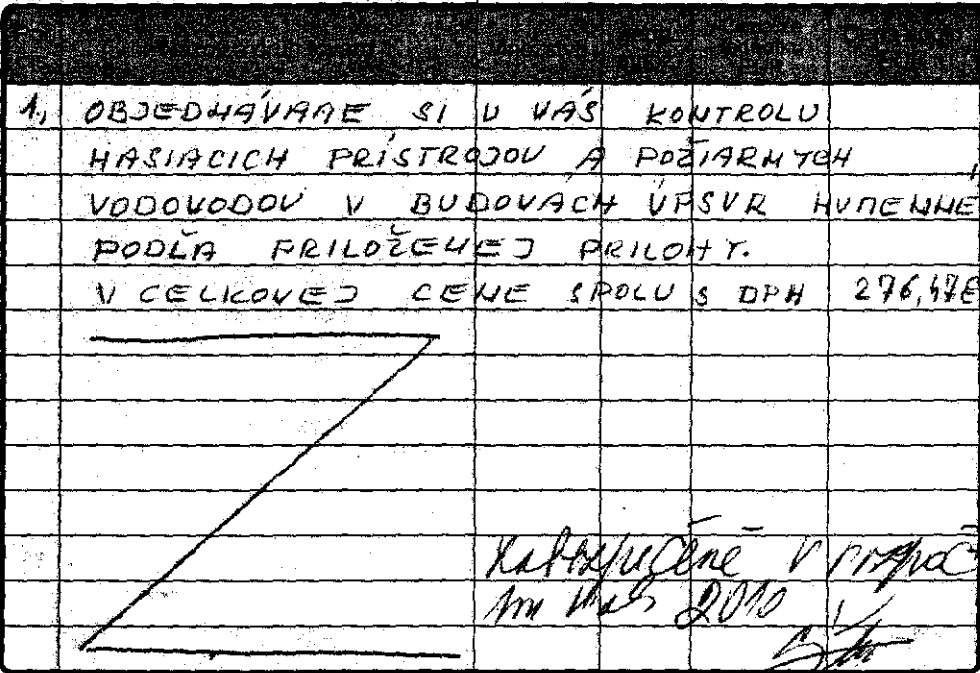 1, OBJEDNÁVAME SI U VÁS KONTROLU
HASIACICH PRÍSTROJOV A POŽIARNYCH
VODOVODOV V BUDOVÁCH ÚPSVR HUMENNÉ
PODĽA PRILOŽENEJ PRILOHY.
V CELKOVEJ CENE SPOLU S DPH 276,47€
Zabezpečené v rozpoč
2010